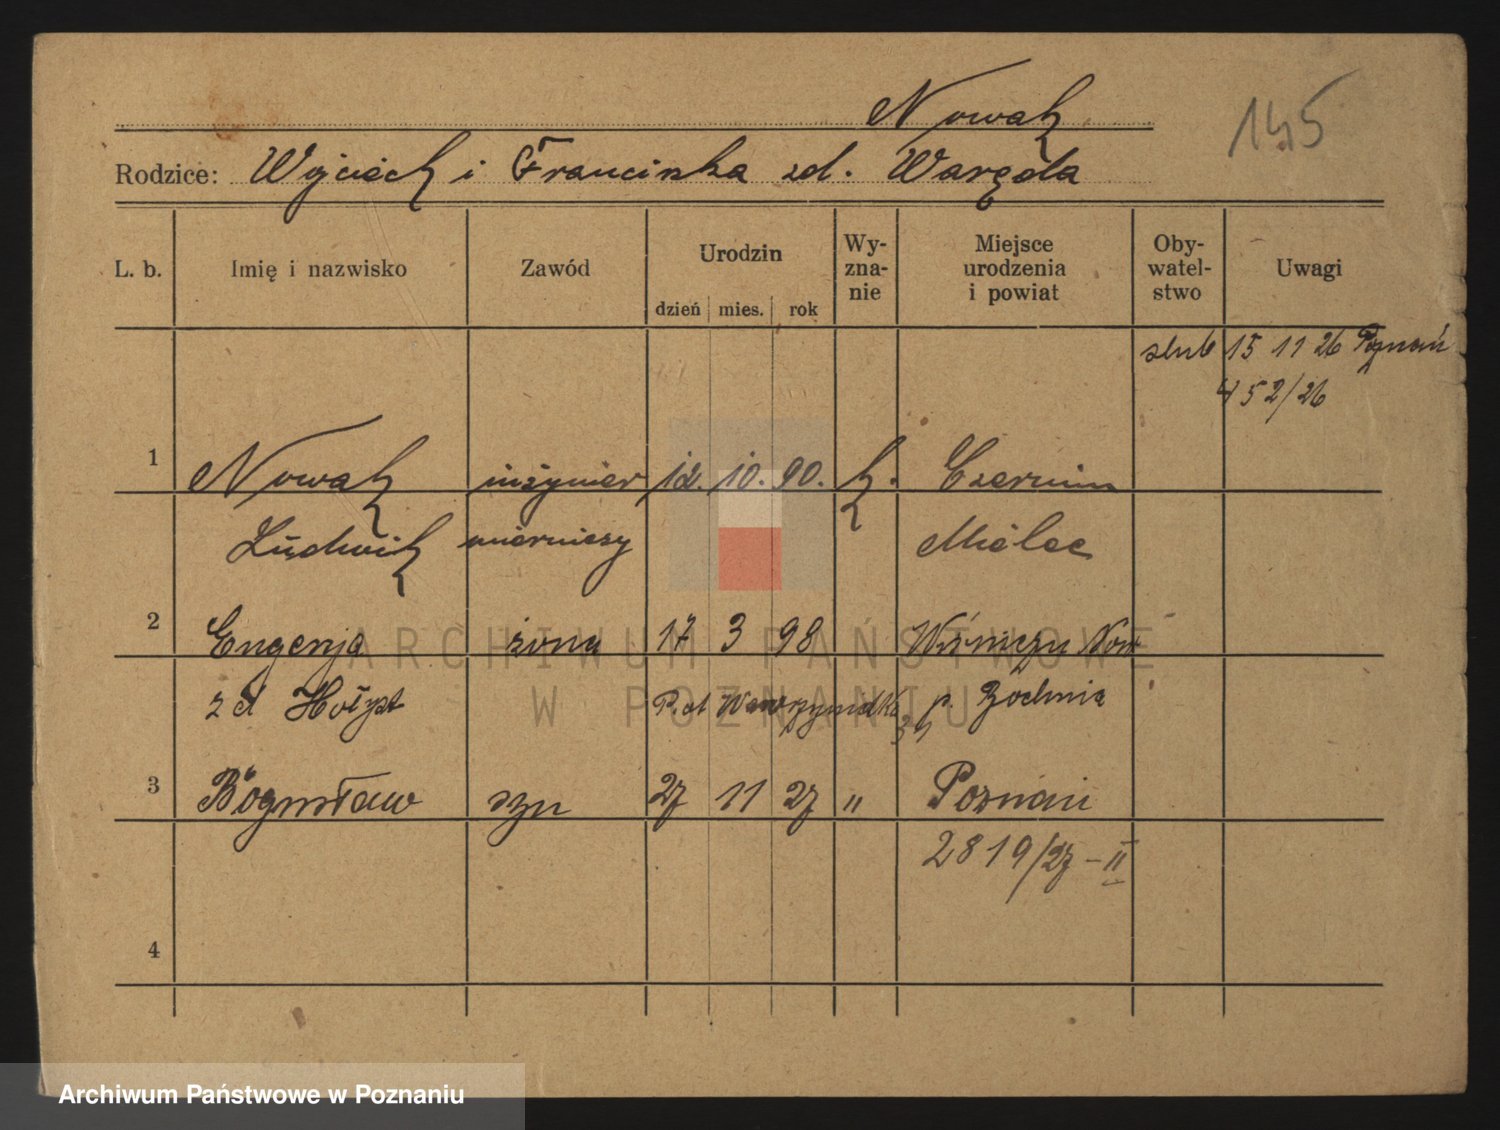 Nowak
145
Rodzice: Wojciech i Franciszka zd. Waręda
L. b.
Imię i nazwisko
Zawód
Urodzin
dzień mies. rok
Wy-
zna-
nie
Miejsce
urodzenia
i powiat
Oby-
watel-
stwo
Uwagi
slub 15 11 26 Poznań
452/26
1 Nowak inżynier 12. 10. 90. k. Czermin
Ludwik mierniczy Mielec
2 Eugenja żona 17 3 98 Wiśniczu Now
zd Hołyst P. d p. Bochnia
3 Bogusław syn 27 11 27 " Poznań
2819/27 - II
4
ARCHIWUM PAŃSTWOWE
W POZNANIU
Archiwum Państwowe w Poznaniu